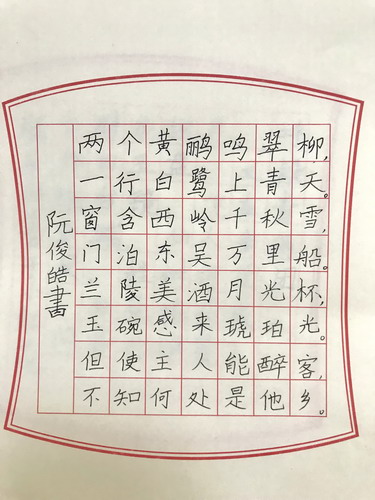 两个黄鹂鸣翠柳，
一行白鹭上青天。
窗含西岭千秋雪，
门泊东吴万里船。
兰陵美酒月光杯，
玉碗感来琥珀光。
但使主人能醉客，
不知何处是他乡。
阮俊皓書